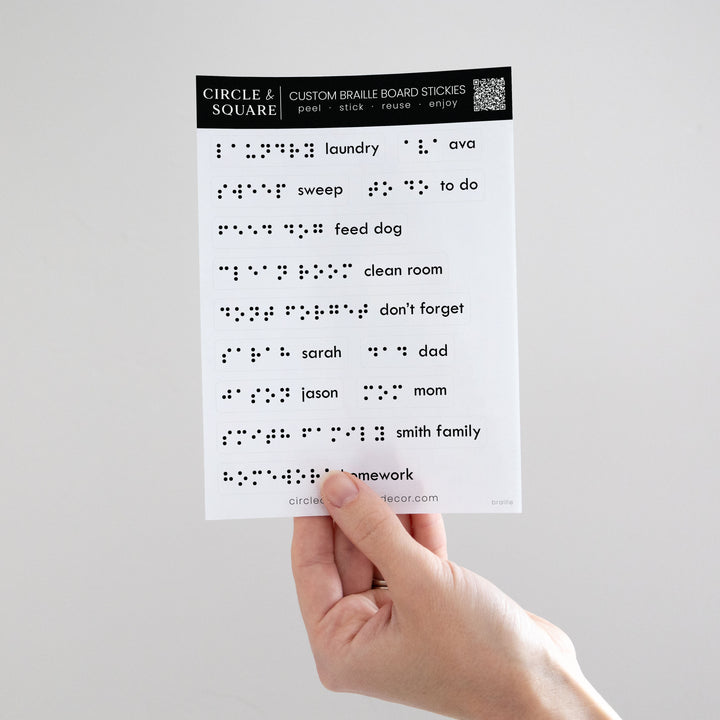 CIRCLE &
SQUARE
CUSTOM BRAILLE BOARD STICKIES
peel · stick · reuse · enjoy
⠇⠁⠥⠝⠙⠗⠽ laundry ⠁⠧⠁ ava
⠎⠺⠑⠑⠏ sweep ⠞⠕ ⠙⠕ to do
⠋⠑⠑⠙ ⠙⠕⠛ feed dog
⠉⠇⠑⠁⠝ ⠗⠕⠕⠍ clean room
⠙⠕⠝⠞ ⠋⠕⠗⠛⠑⠞ don't forget
⠎⠁⠗⠁⠓ sarah ⠙⠁⠙ dad
⠚⠁⠎⠕⠝ jason ⠍⠕⠍ mom
⠎⠍⠊⠞⠓ ⠋⠁⠍⠊⠇⠽ smith family
homework
braille